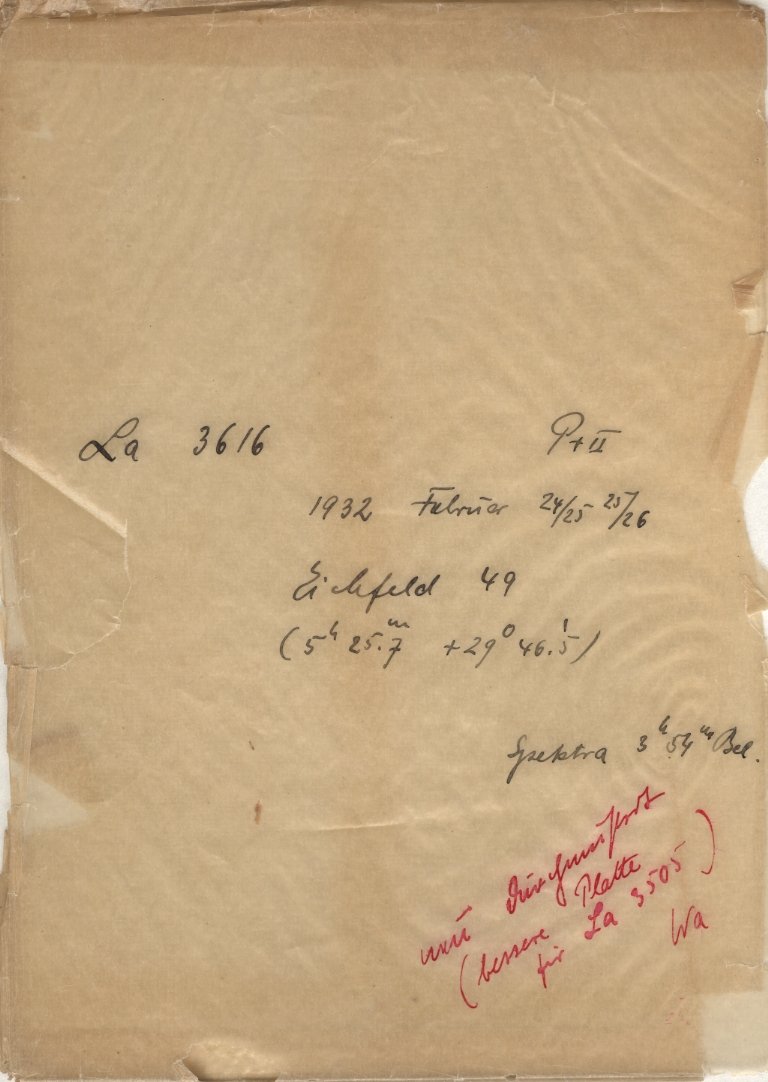 La 3616 P+II
1932 Februar 24/25 25/26
Eichfeld 49
(5ʰ 25.ᵐ7 +29° 46.'5)
Spektra 3ʰ 54ᵐ Bel.
neu durchmustert
(bessere Platte
für La 3505)
Wa